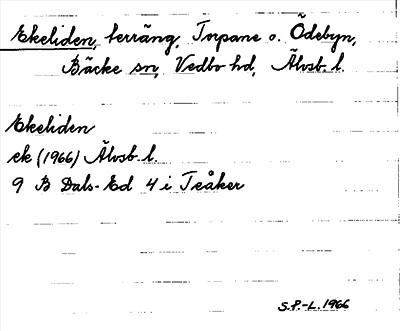 Ekeliden, terräng, Torpane o. Ödebyn,
Bäcke sn, Vedbo hd, Älvsb. l.
Ekeliden
ek (1966) Älvsb. l.
9 B Dals-Ed 4 i Teåker
S.P.-L. 1966